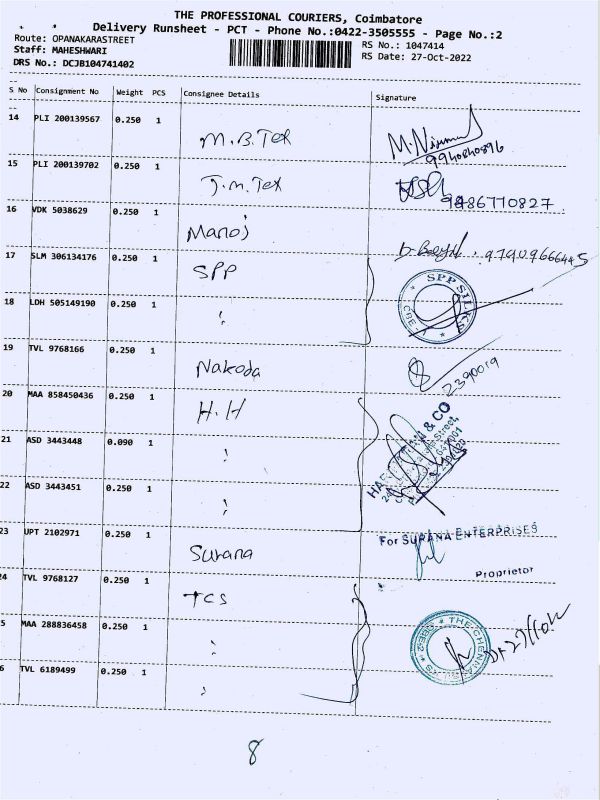 THE PROFESSIONAL COURIERS, Coimbatore
Delivery Runsheet - PCT - Phone No.:0422-3505555 - Page No.:2
Route: OPANAKARASTREET RS No.: 1047414
Staff: MAHESHWARI RS Date: 27-Oct-2022
DRS No.: DCJB104741402
S No Consignment No Weight PCS Consignee Details Signature
14 PLI 200139567 0.250 1 M.B.Tex M.Nirmal
9940840896
15 PLI 200139702 0.250 1 J.M.Tex
9486770827
16 VDK 5038629 0.250 1 Manoj 9790966645
17 SLM 306134176 0.250 1 SPP SPP SILKS CBE - 1
18 LDH 505149190 0.250 1 "
19 TVL 9768166 0.250 1 Nakoda 2390019
20 MAA 858450436 0.250 1 H.H & CO
21 ASD 3443448 0.090 1 "
22 ASD 3443451 0.250 1 "
23 UPT 2102971 0.250 1 Surana For SURANA ENTERPRISES
Proprietor
24 TVL 9768127 0.250 1 TCS
5 MAA 288836458 0.250 1 " THE CHENNAI SILKS
6 TVL 6189499 0.250 1 "
8